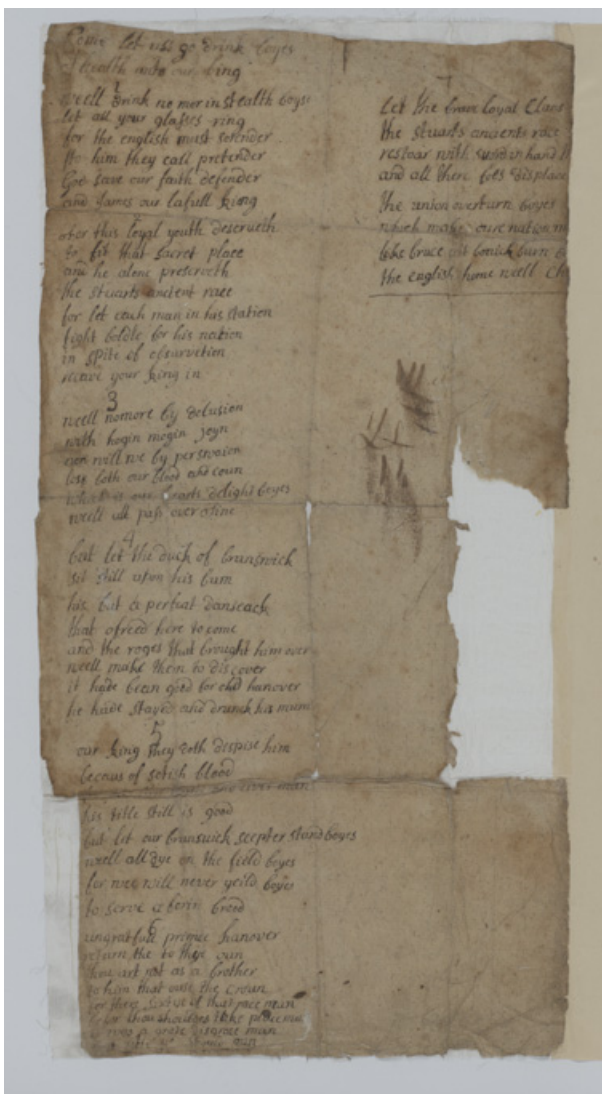 Come let uss go drink boyes
a health unto our king
1
weell drink no mor in stealth boys
let all your glasses ring
for the english must serender
to him they call pretender
God save our faith defender
and James our lafull king
ober this loyal youth deserveth
to
that sacret place
and he alone preserveth
the stuarts ancient race
for let each man in his station
fight boldle for his nation
in spite of
your king in
3
weell nomore by delusion
with hogin mogin joyn
nor will we by perswaion
loss both our blood and coun
our hearts delight boyes
weell all pass over
4
but let the duck of brunswick
sit still upon his bum
his but a perfeat
that ofreed here to come
and the roges that brought him over
weell make them to discover
it hade been good for old hanover
he hade stayed and drunck his mum
5
our king they doth dispise him
becaus of sotish blood
his title still is good
but let our brunswick scepter stand boyes
weell all dye on the field boyes
for wee will never yeild boyes
to serve a forin brood
6
ungratfull prince hanover
return the to thy oun
thou art not as a brother
to him that ows the crown
for there
of that race man
thou shouldes take place man
a great disgrace man
7
Let the brave loyal Clans
the stuarts ancients race
restoar with sword in hand
and all there foes displace
the union overturn boyes
which makes oure nation
like bruce att
burn
the english home weell